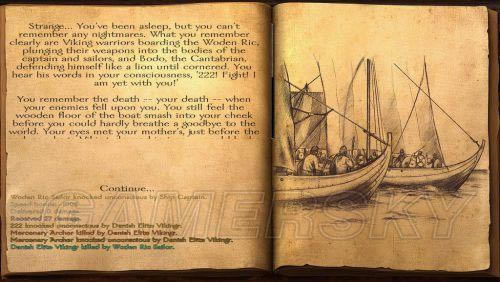 Strange... You've been asleep, but you can't
remember any nightmares. What you remember
clearly are Viking warriors boarding the Woden Ric,
plunging their weapons into the bodies of the
captain and sailors, and Bodo, the Cantabrian,
defending himself like a lion until cornered. You
hear his words in your consciousness, '222! Fight! I
am yet with you!'
You remember the death -- your death -- when
your enemies fell upon you. You still feel the
wooden floor of the boat smash into your cheek
before you could hardly breathe a goodbye to the
world. Your eyes met your mother's, just before the
Continue...
Woden Ric Sailor knocked unconscious by Ship Captain.
Speed bonus
Delivered damage.
Received 27 damage.
222 knocked unconscious by Danish Elite Vikingr.
Mercenary Archer killed by Danish Elite Vikingr.
Mercenary Archer knocked unconscious by Danish Elite Vikingr.
Danish Elite Vikingr killed by Woden Ric Sailor.
GAMERSKY